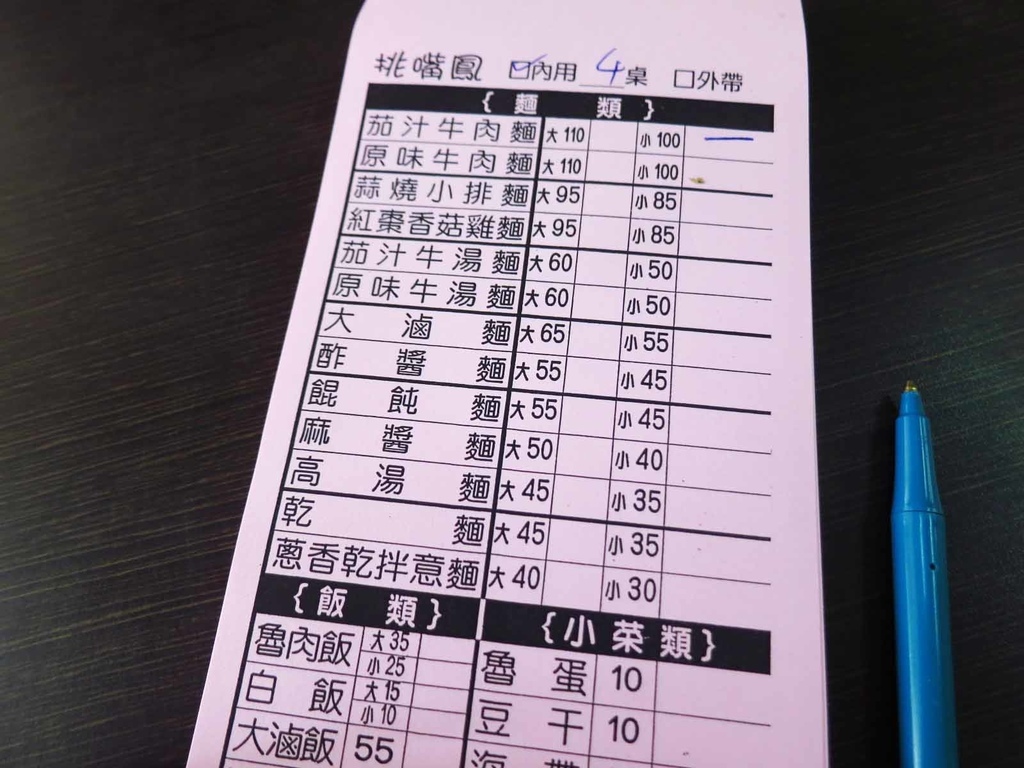 挑嘴鳳 ☑內用 4桌 □外帶
{ 麵 類 }
茄汁牛肉麵 大110 小100 一
原味牛肉麵 大110 小100
蒜燒小排麵 大95 小85
紅棗香菇雞麵 大95 小85
茄汁牛湯麵 大60 小50
原味牛湯麵 大60 小50
大滷麵 大65 小55
酢醬麵 大55 小45
餛飩麵 大55 小45
麻醬麵 大50 小40
高湯麵 大45 小35
乾麵 大45 小35
蔥香乾拌意麵 大40 小30
{ 飯 類 } {小菜類}
魯肉飯 大35 小25 魯蛋 10
白飯 大15 小10 豆干 10
大滷飯 55 海帶